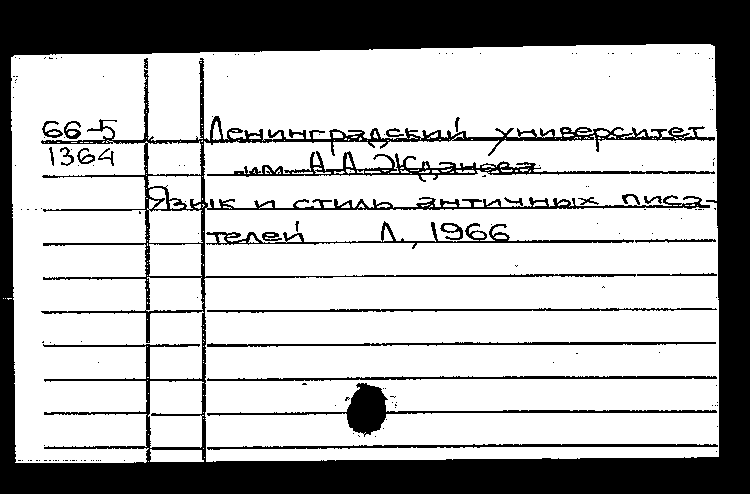 66-5 Ленинградский университет
1364 им. А.А Жданова
Язык и стиль античных писа-
телей Л., 1966